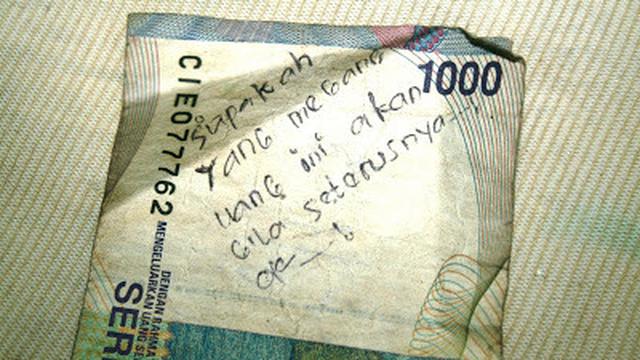 1000
CIE077762
Siapakah
yang megang
uang ini akan
Gila seterusnya---!
OK---!
DENGAN RAHMA
MENGELUARKAN UANG SE
SER